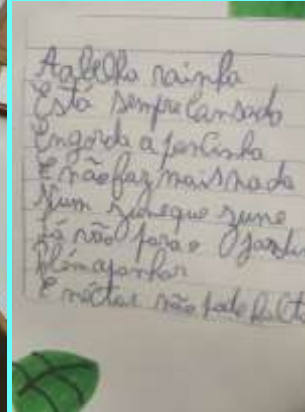 A abelha rainha
Está sempre cansada
Engorda a pancinha
E não faz mais nada
Zum zumeque zume
Já não para o Jardim
Pólen apanhar
E néctar não pode falta